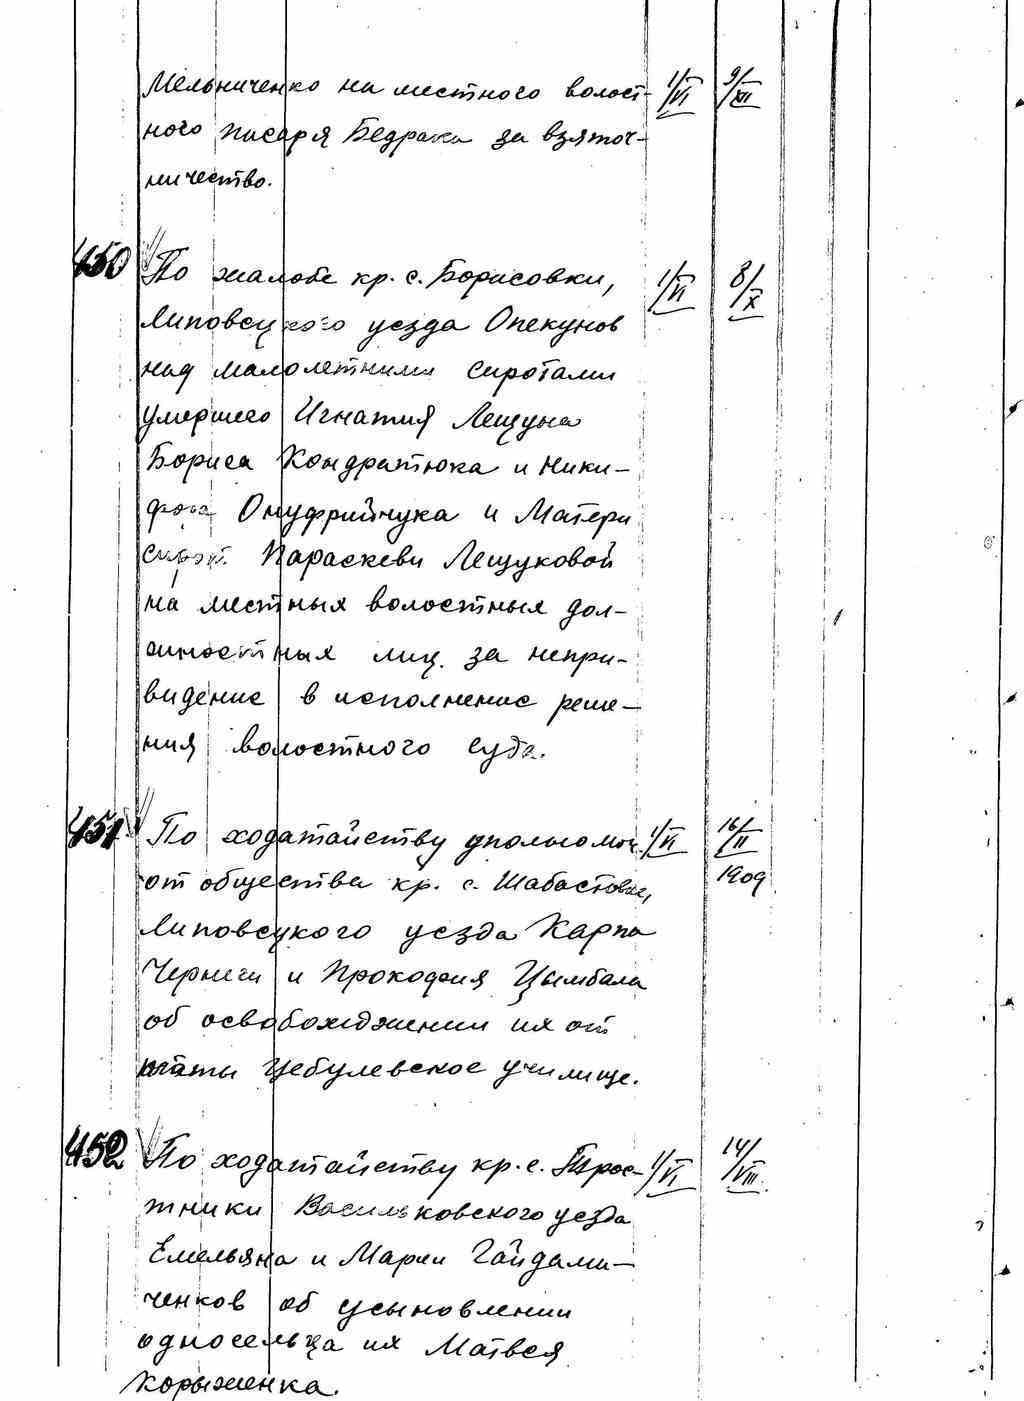 Мельниченко на местного волост- 1/VI 9/XII
ного писаря Бедрака за взяточ-
ничество.
450 По жалобе кр. с. Борисовки, 1/VI 8/X
Липовецкого уезда Опекунов
над малолетними сиротами
умершего Игнатия Лещука
Бориса Кондратюка и Ники-
фора Онуфрийчука и Матери
сирот. Параскеви Лещуковой
на местных волостных дол-
жностных лиц. за непри-
видение в исполнение реше-
ния волостного суда.
451 По ходатайству уполномоч. 1/VI 16/II
от общества кр. с. Шабастовки, 1909
Липовецкого уезда Карпа
Чернеги и Прокофия Цымбала
об освобождении их от
платы Цебулевское училище.
452 По ходатайству кр. с. Трос- 1/VI 14/VIII
тники Васильковского уезда
Емельяна и Марии Гайдама-
ченков об усыновлении
односельца их Матвея
Корыженка.